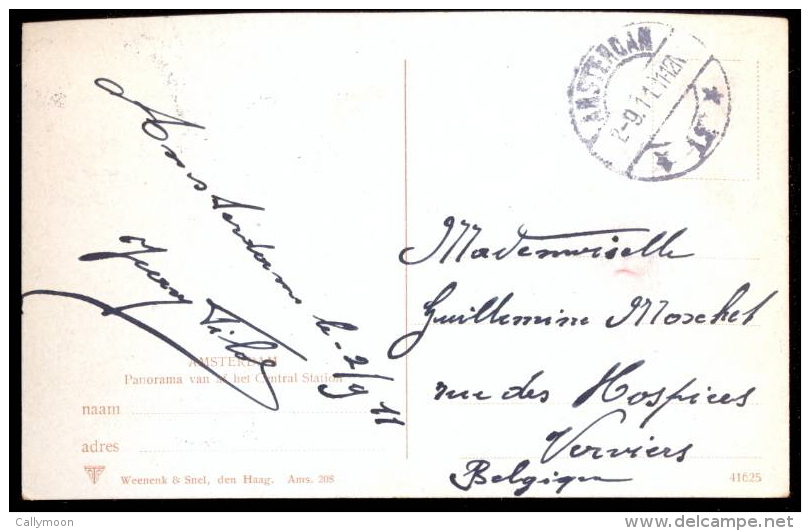 AMSTERDAM
2-9.11
Amsterdam le 2/9 11
AMSTERDAM
Panorama van af het Central Station
naam
adres
Weenenk & Snel, den Haag. Ams. 208
Mademoiselle
Guillemine Moschet
rue des Hospices
Verviers
Belgique
41625
Callymoon
delcampe.net